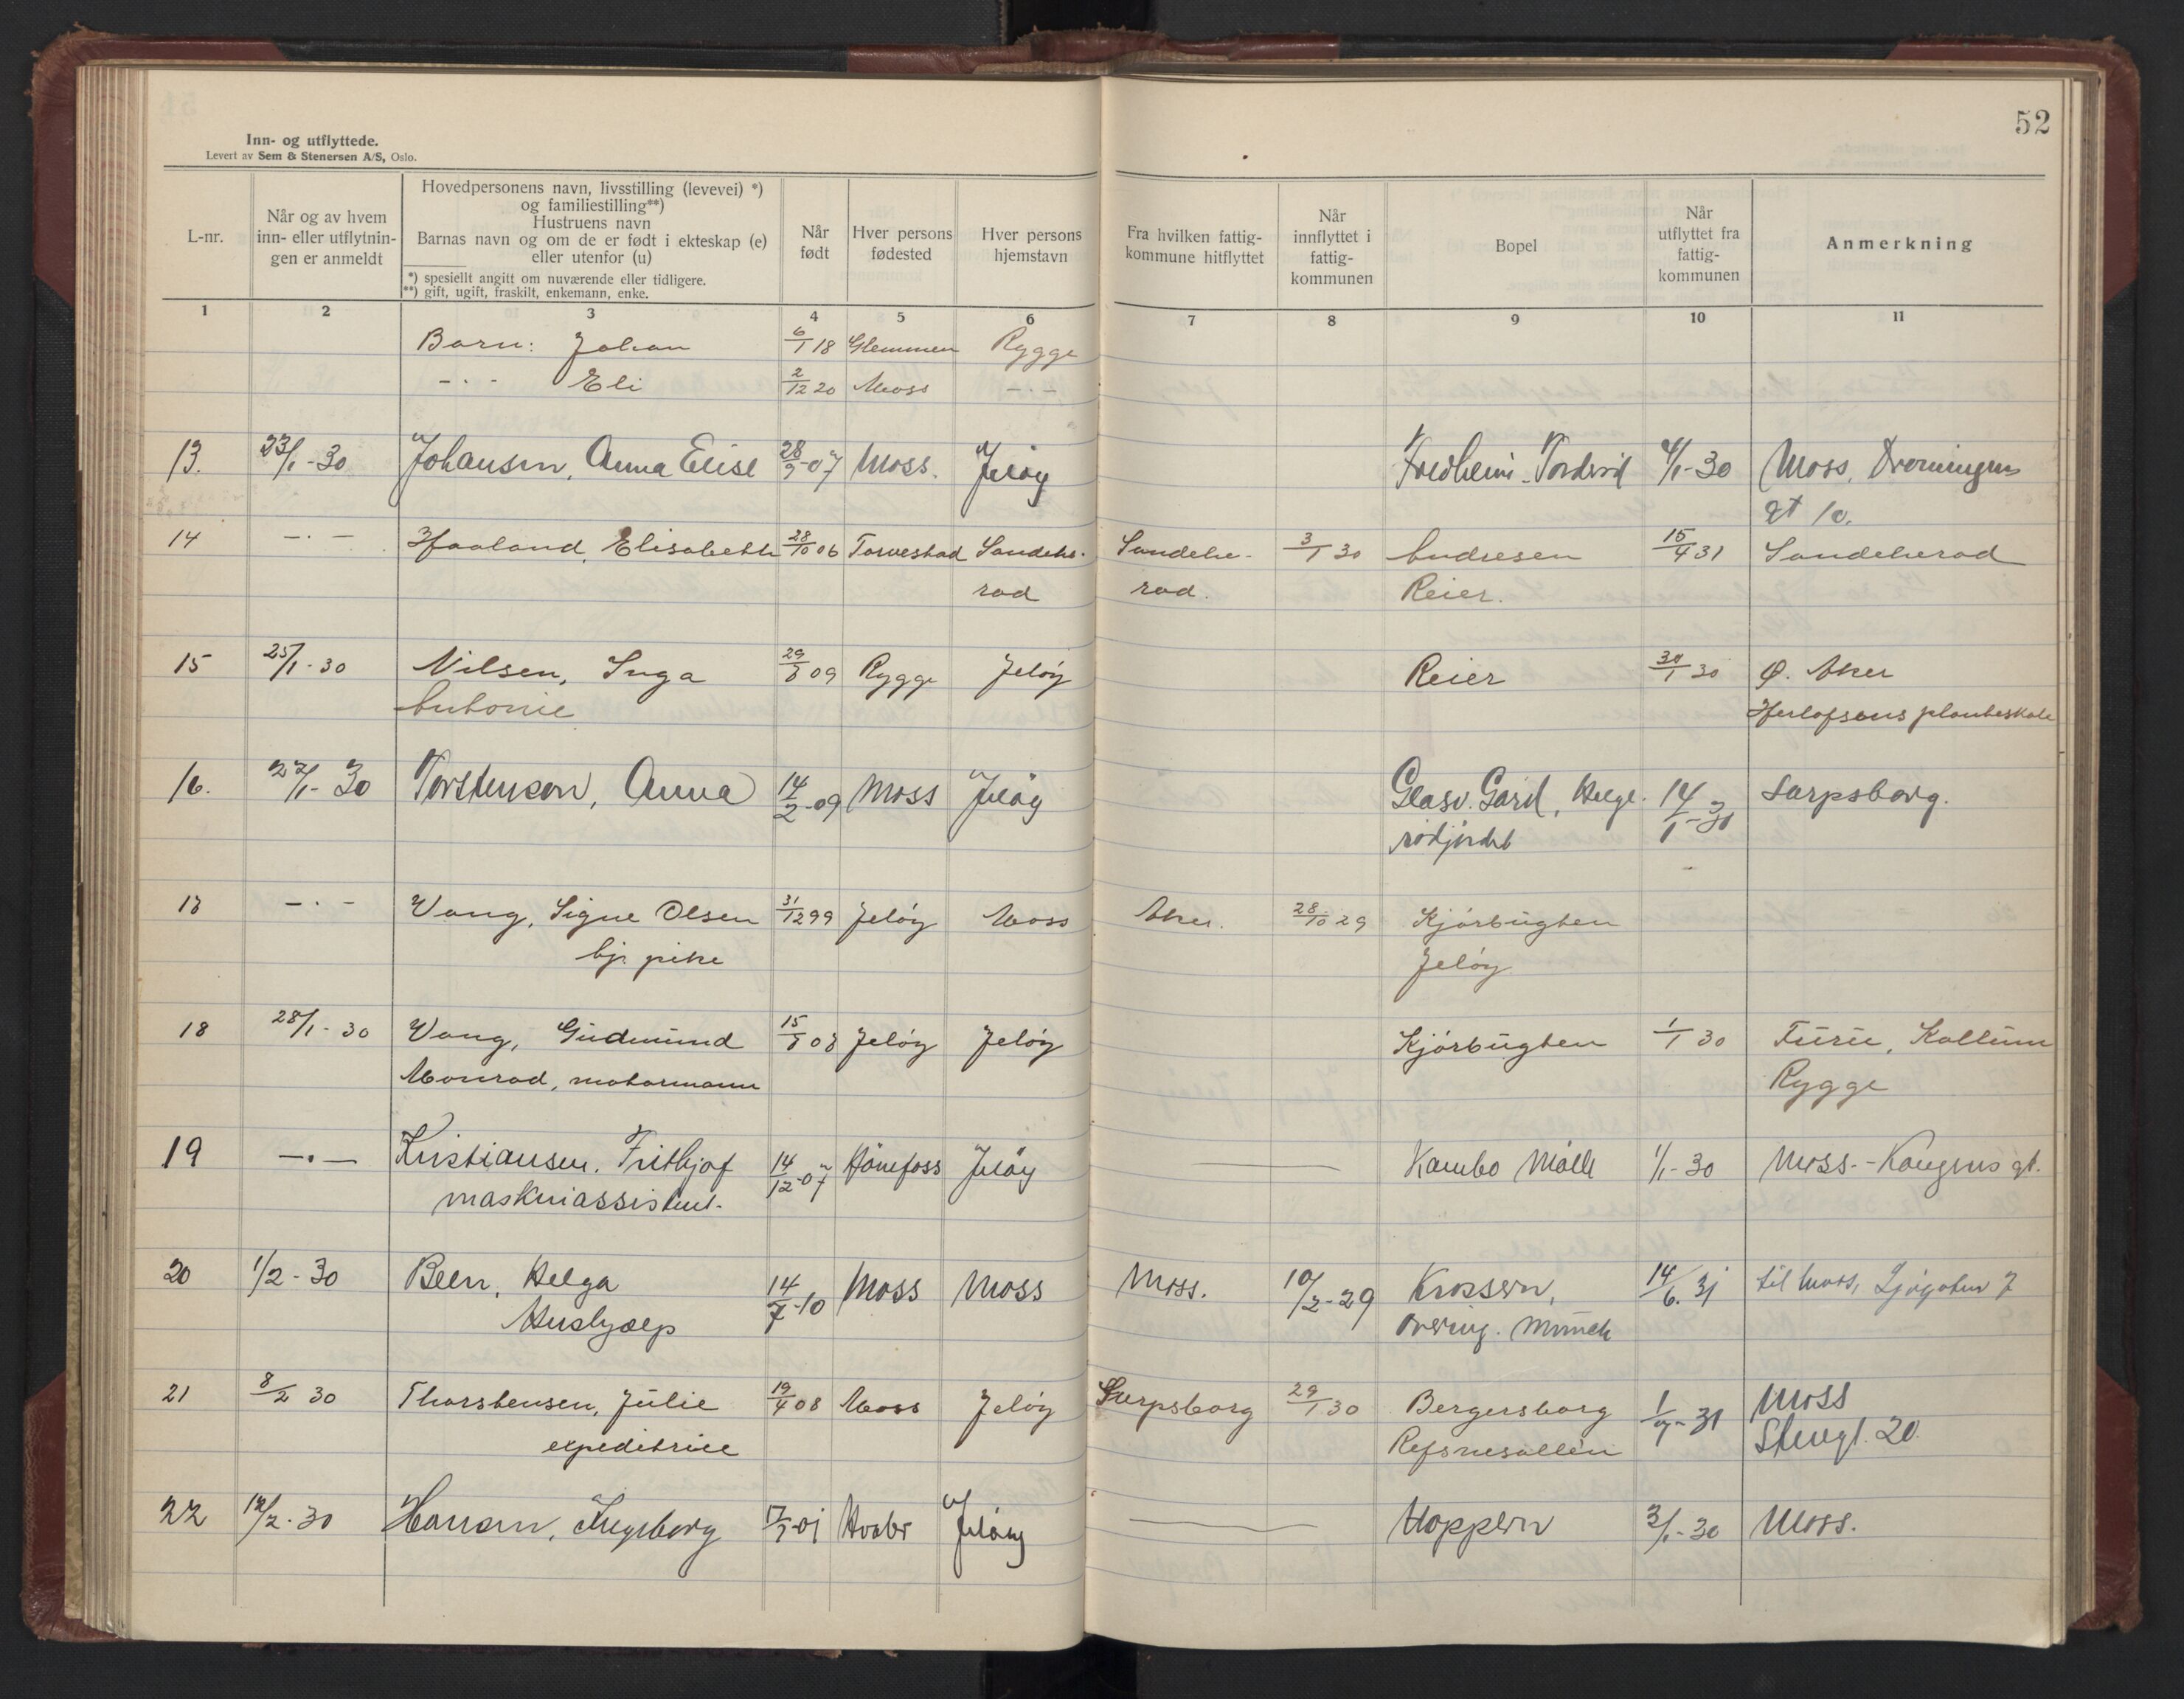 52
Inn- og utflyttede.
Levert av Sem & Stenersen A/S, Oslo.
L-nr.
Når og av hvem
inn- eller utflytnin-
gen er anmeldt
Hovedpersonens navn, livsstilling (levevei) *)
og familiestilling**)
Hustruens navn
Barnas navn og om de er født i ekteskap (e)
eller utenfor (u)
*) spesiellt angitt om nuværende eller tidligere.
**) gift, ugift, fraskilt, enkemann, enke.
Når
født
Hver persons
fødested
Hver persons
hjemstavn
Fra hvilken fattig-
kommune hitflyttet
Når
innflyttet i
fattig-
kommunen
Bopel
Når
utflyttet fra
fattig-
kommunen
Anmerkning
1 2 3 4 5 6 7 8 9 10 11
Barn: Johan 6/1 18 Glemmen Rygge
-·- Eli 2/12 20 Moss -·-
13. 23/1-30 Johansen, Anna Elise Moss. Jeløy Fredheim - Tordrød 4/1-30 Moss, Dronningens
gt 10.
14 -·- Haaland, Elisabeth 28/10 06 Torvestad Sandehe- Sandehe- 3/1 30 Andresen 15/4 31 Sandeherad
rad rad. Reier.
15 25/1-30 Nilsen, Inga 29/8 09 Rygge Jeløy Reier 30/1 30 Ø. Aker
Antonie Herlofsens planteskole
16. 27/1-30 Torstenson, Anna 14/2-09 Moss Jeløy Glasv. Gård, Helge- 14/1-31 Sarpsborg.
rødjordet
17 -·- Vang, Signe Olsen 31/12 99 Jeløy Moss Aker. 28/10 29 Kjørbugten
hj. pike Jeløy
18 28/1-30 Vang, Gudmund 15/8 08 Jeløy Jeløy Kjørbugten 1/1 30 Furu, Kallum
Monrad, motormann Rygge
19 -·- Kristiansen, Frithjof 14/12-07 Hönefoss Jeløy Kambo Mølle 1/1-30 Moss.-Kongens gt.
maskinassistent.
20 1/2-30 Been, Helga 14/7-10 Moss Moss Moss. 10/2-29 Krossern, 14/6.31 til Moss,
Hushjælp overing. Munch
21 8/2 30 Thorstensen, Julie 19/4 08 Moss Jeløy Sarpsborg 29/1 30 Bergersborg Moss
expeditrice Refsnesalléen Stengt. 20.
22 12/2-30 Hansen, Ingeborg Hvaler Jeløy Hoppern 3/1-30 Moss.